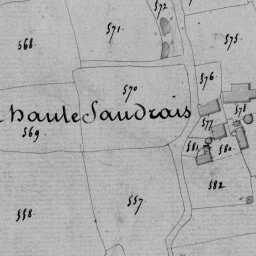 572
571
573
568
576
570
578
haute Saudrais
577
569
581
580
582
557
558